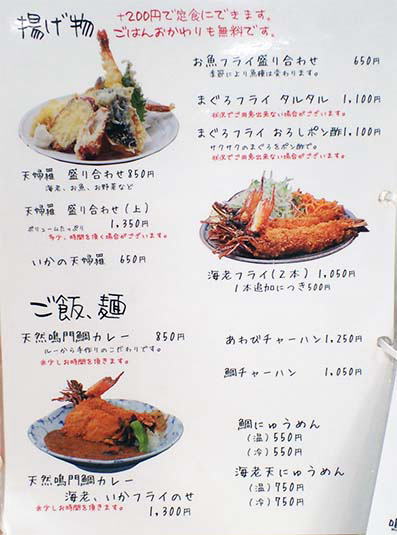 揚げ物
+200円で定食にできます。
ごはんおかわりも無料です。
天婦羅 盛り合わせ 850円
海老、お魚、お野菜など
天婦羅 盛り合わせ(上)
1,350円
ボリュームたっぷり
多少、時間を頂く場合がございます。
いかの天婦羅 650円
お魚フライ盛り合わせ 650円
季節により魚種は変わります。
まぐろフライ タルタル 1,100円
状況でご用意出来ない場合がございます。
まぐろフライ おろしポン酢 1,100円
サクサクのまぐろをポン酢で。
状況でご用意出来ない場合がございます。
海老フライ(2本) 1,050円
1本追加につき500円
ご飯、麺
天然鳴門鯛カレー 850円
ルーから手作りのこだわりです。
※少しお時間を頂きます。
天然鳴門鯛カレー
海老、いかフライのせ
※少しお時間を頂きます。
1,300円
あわびチャーハン 1,250円
鯛チャーハン 1,050円
鯛にゅうめん
(温) 550円
(冷) 550円
海老天にゅうめん
(温) 750円
(冷) 750円